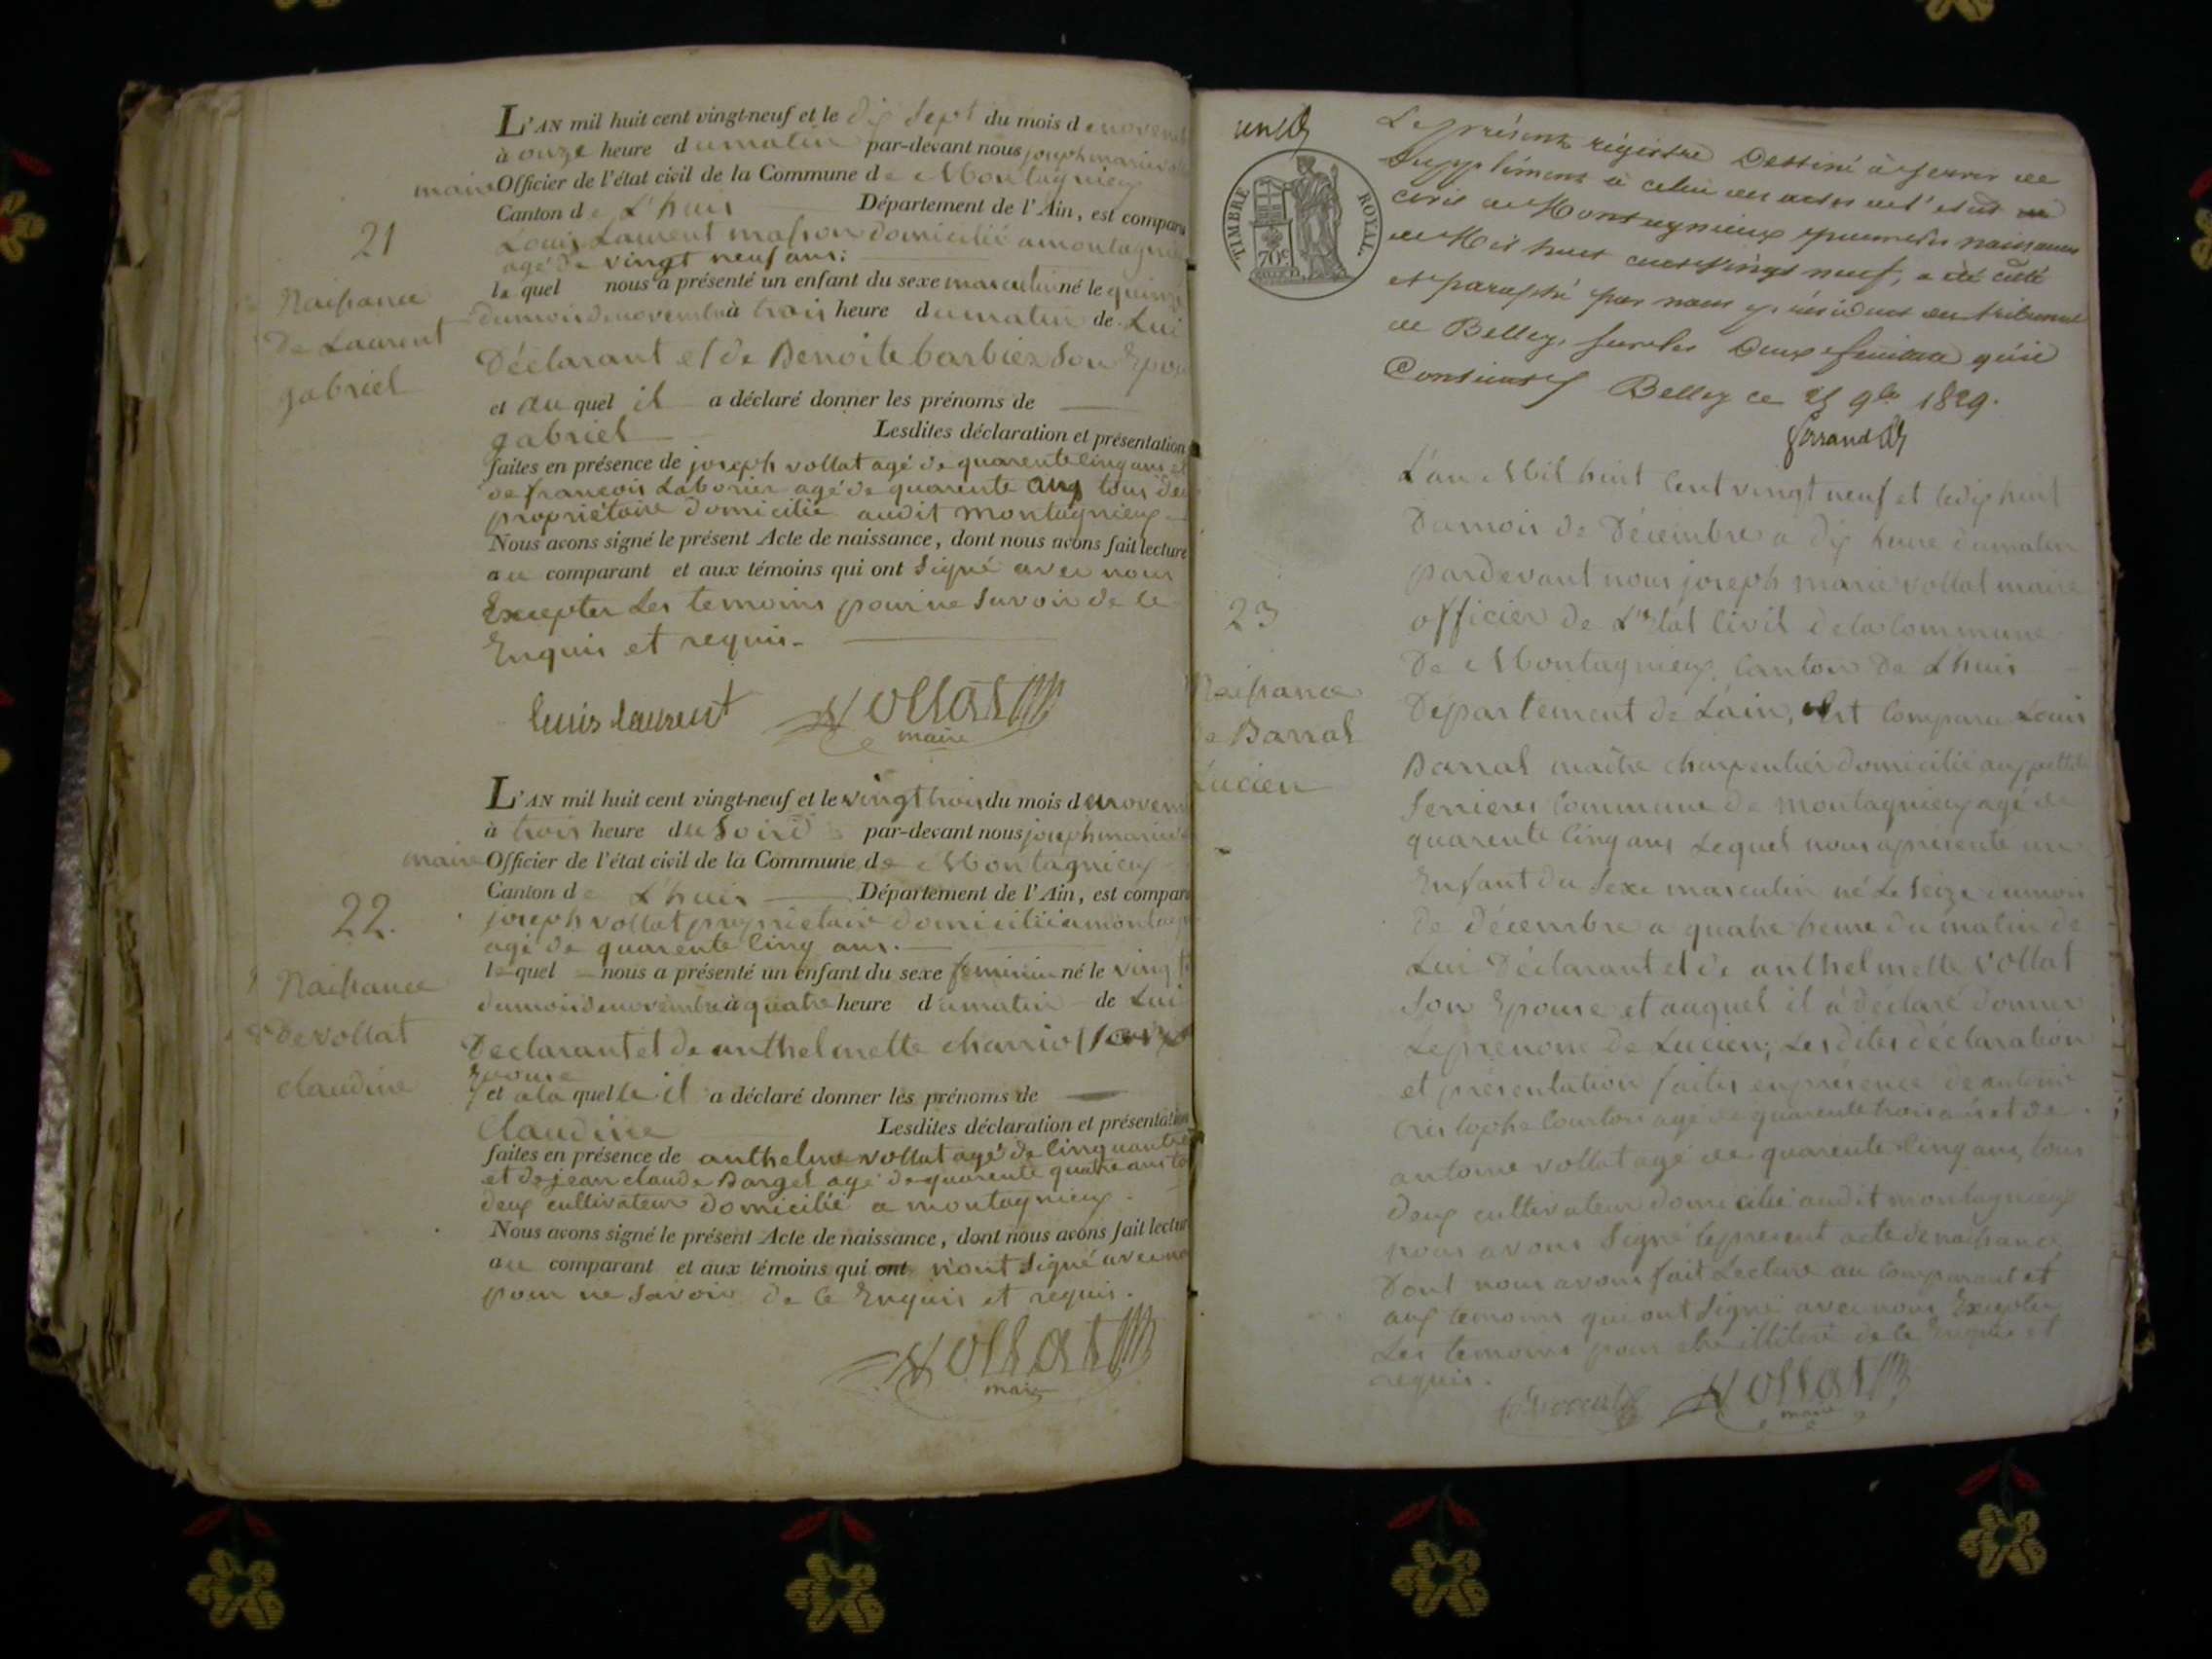 L'AN mil huit cent vingt-neuf et le dix sept du mois de novem
à onze heure du matin par-devant nous joseph marie
maire Officier de l'état civil de la Commune de Montagnieux
Canton de L'huis Département de l'Ain, est comparu
Louis Laurent masson domicilié a montagni
agé de vingt neuf ans;
le quel nous a présenté un enfant du sexe masculin né le quinze
du mois de novembre à trois heure du matin de Lui
Déclarant et de Benoite barbier Son Epou
et au quel il a déclaré donner les prénoms de
gabriel Lesdites déclaration et présentation
faites en présence de joseph vollat agé de quarente cinq ans et
de francois Laborier agé de quarente ans tous deu
propriétaire domicilié audit montagnieux
Nous avons signé le présent Acte de naissance, dont nous avons fait lecture
au comparant et aux témoins qui ont Signé avec nous
Excepter Les temoins pour ne Savoir de ce
Enquis et requis.
Louis Laurent Vollat
maire
21
Naissance
De Laurent
gabriel
L'AN mil huit cent vingt-neuf et le vingt trois du mois de novem
à trois heure du Soir par-devant nous joseph marie
maire Officier de l'état civil de la Commune de Montagnieux
Canton de L'huis Département de l'Ain, est compar
joseph vollat propriétair domicilié a montag
agé de quarente cinq ans.
le quel nous a présenté un enfant du sexe feminin né le vingt
du mois de novembre à quatre heure du matin de Lui
Declarant et de anthelmette charriot
Epouse
et a la quelle il a déclaré donner les prénoms de
Claudine Lesdites déclaration et présentation
faites en présence de anthelme vollat agé de cinquante
et de jean claude Barget agé de quarente quatre ans to
deux cultivateur domicilié a montagnieux.
Nous avons signé le présent Acte de naissance, dont nous avons fait lectur
au comparant et aux témoins qui ont n'ont Signé avec no
pour ne Savoir de ce Enquis et requis.
Vollat
maire
22.
Naissance
de vollat
claudine
TIMBRE ROYAL.
70c
Le présent régistre Destiné à servir de
Supplément à celui des actes de l'etat
civil de Montagnieux pour les naissances
de Mil huit cent vingt neuf, a été coté
et paraphé par nous président du tribunal
de Belley, sur les Deux feuillets qu'il
Contient Belley ce 25 9bre 1829.
Ferrand
L'an Mil huit Cent vingt neuf et le dix huit
Du mois de Décembre a dix heure du matin
pardevant nous joseph marie vollat maire
officier de L'Etat Civil de la Commune
De Montagnieux, Canton De Lhuis
Département de L'ain, est Comparu Louis
Barral maitre charpentier domicilié au
Serrieres Commune de Montagnieux agé de
quarente Cinq ans Lequel nous a présenté un
Enfant du Sexe masculin né Le Seize du mois
de décembre a quatre heure du matin de
Lui Déclarant et de anthelmette Vollat
Son Epouse et auquel il a déclaré donner
Le prenom de Lucien; Les dites déclaration
et présentation faites en présence de antoine
Cristophe Courton agé de quarente trois ans et de
antoine vollat agé de quarente cinq ans, tous
Deux cultivateur domicilié audit montagnieux
nous avons Signé le present acte de naissance,
Dont nous avons fait Lecture au Comparant et
aux temoins qui ont Signé avec nous Excepter
Les temoins pour etre illitéré de ce Enquis et
requis.
Vollat
maire
23
Naissance
De Barral
Lucien